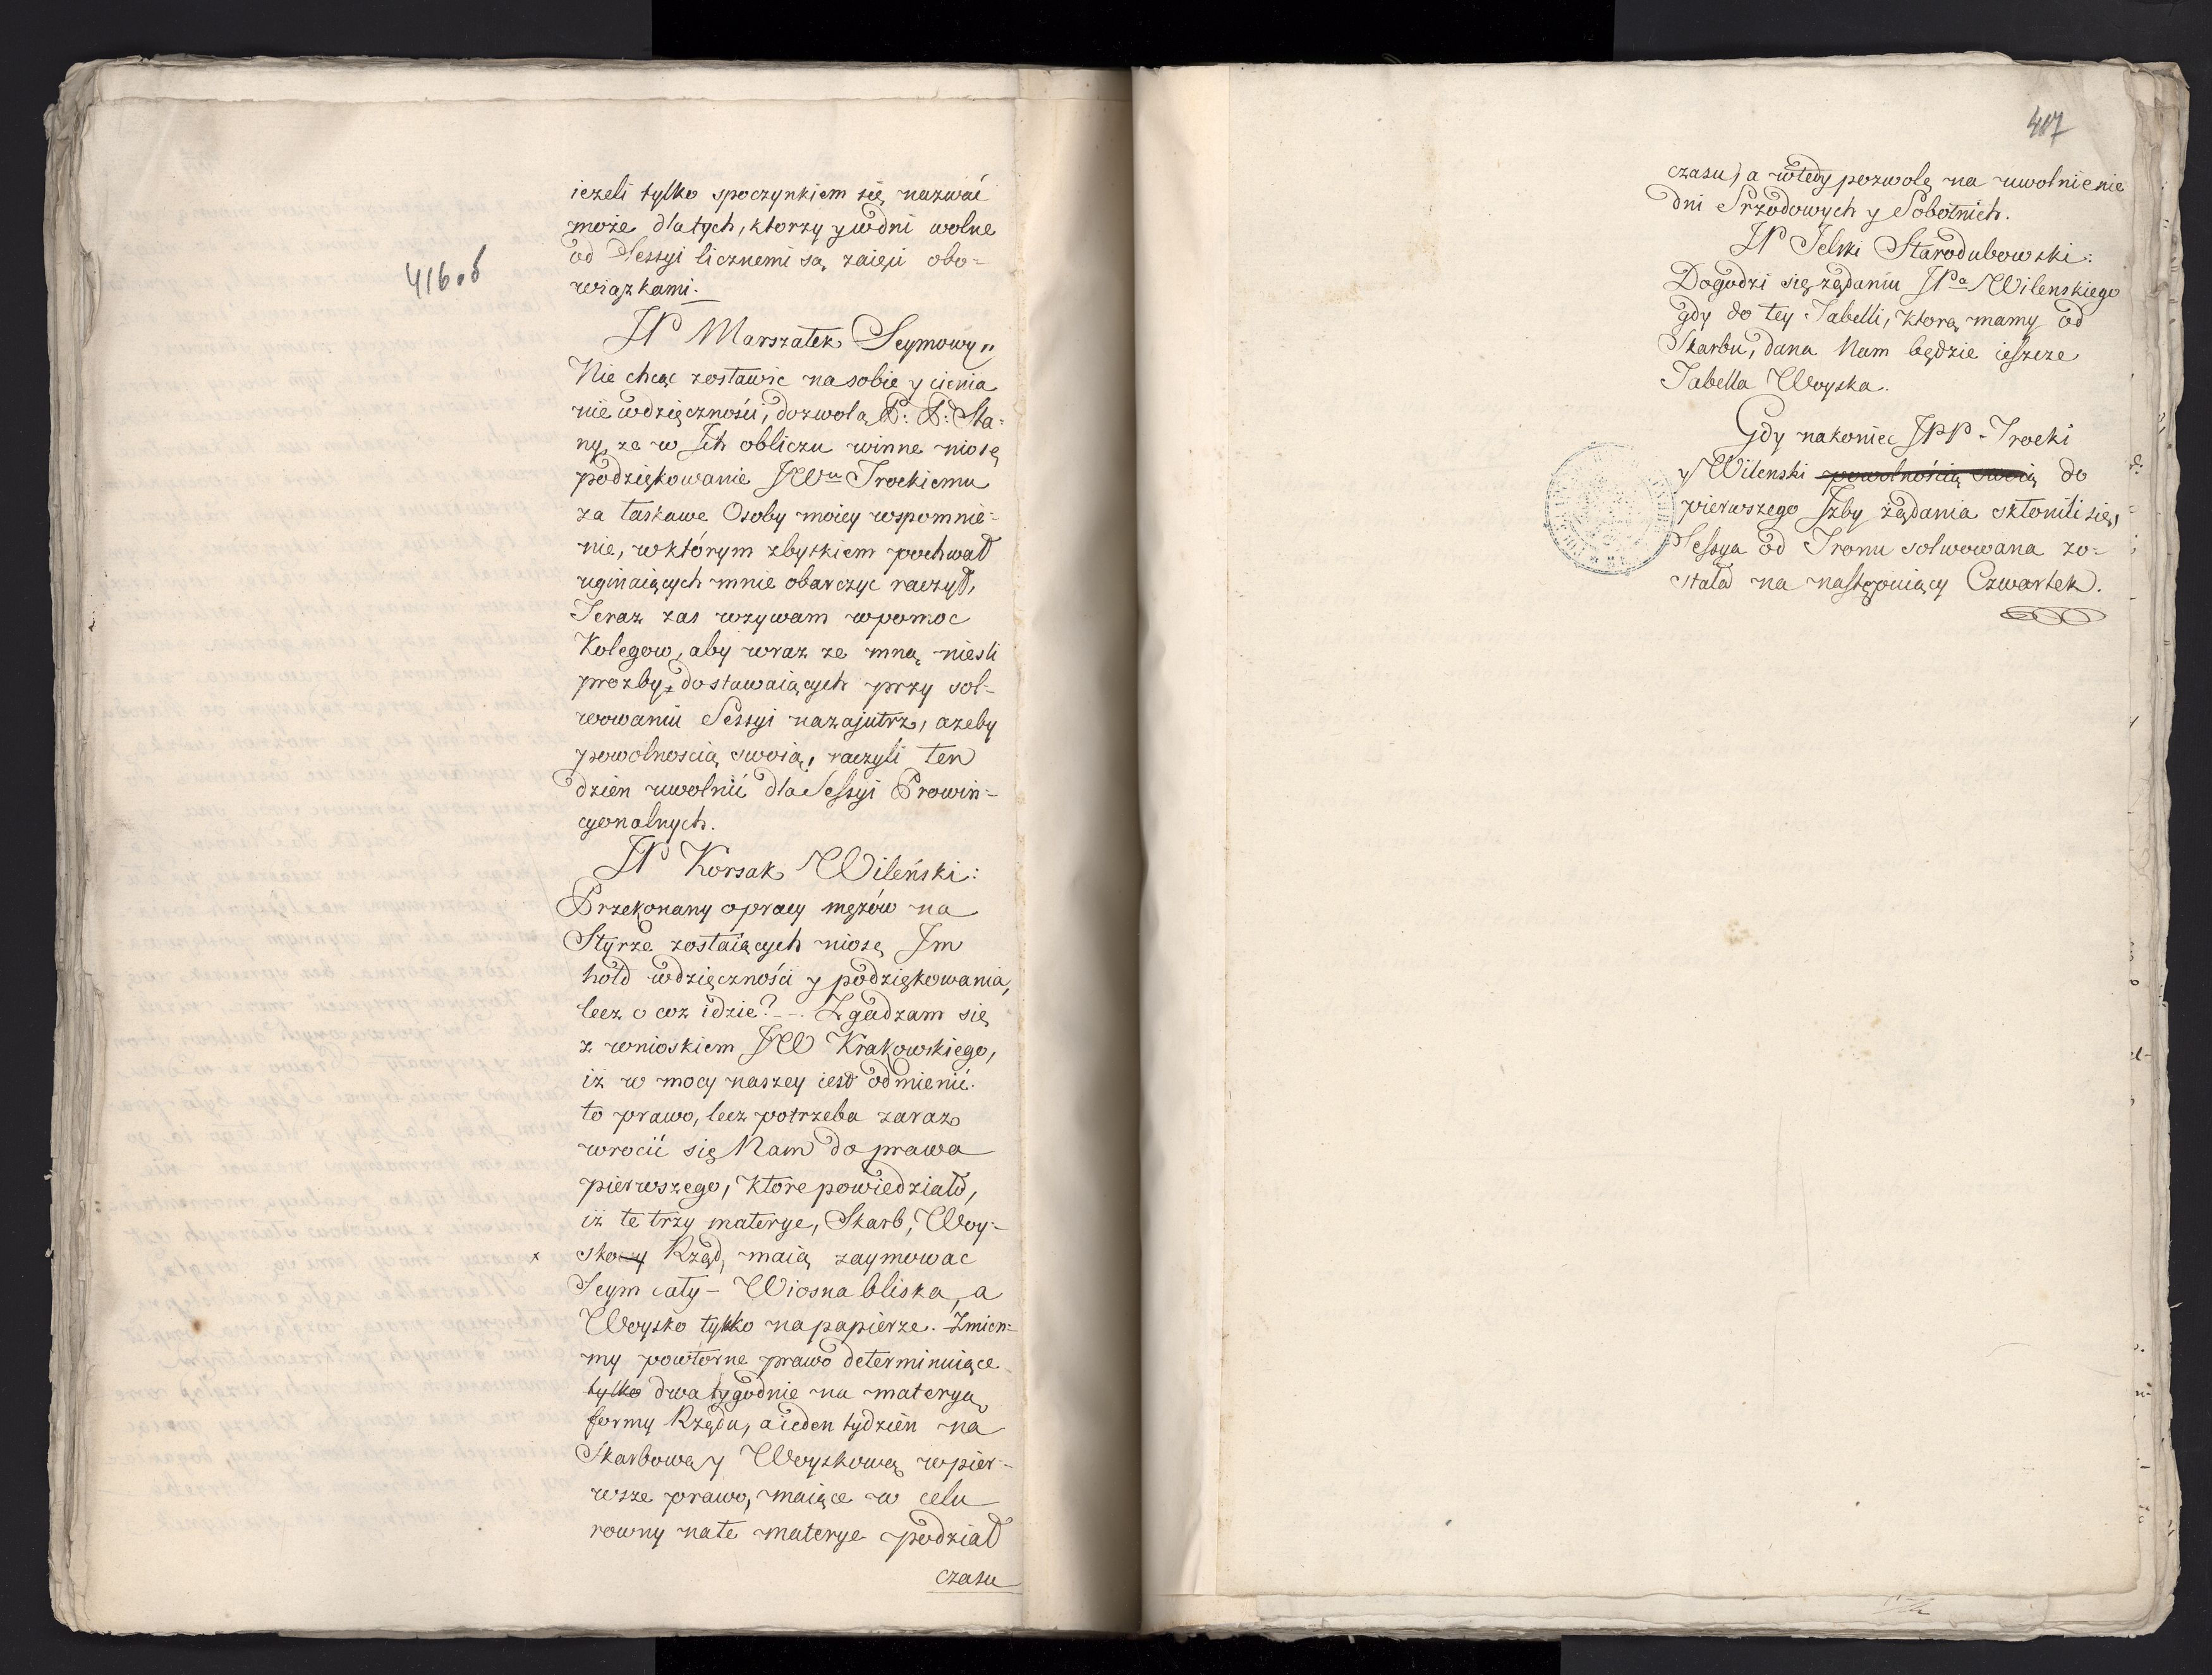 416 об
ieżeli tylko spoczynkiem się nazwać
może dla tych, ktorzy y w dni wolne
od Sessyi licznemi są zaięci obo=
wiązkami.
JP Marszałek Seymowy"
Nie chcąc zostawić na sobie y cienia
nie wdzięczności, dozwolą P: P: Sta=
ny, że w Jch obliczu winne niosę
podziękowanie JWu Trockiemu
za łaskawe Osoby moiey wspomnie=
nie, w którym zbytkiem pochwał
uginaiących mnie obarczyc raczył,
Teraz zas wzywam w pomoc
Kolegow, aby wraz ze mną niesli
prozby dostawaiących przy sol=
wowaniu Sessyi nazajutrz, azeby
powolnoscią swoią, raczyli ten
dzien uwolnić dla Sessyi Prowin=
cyonalnych.
JP Korsak Wileński:
Przekonany o pracy mężów na
Styrze zostaiących niosę Jm
hołd wdzięczności y podziękowania,
lecz o coz idzie? --. Zgadzam się
z wnioskiem JW Krakowskiego,
iż w mocy naszey iest odmienić
to prawo, lecz potrzeba zaraz
wrocić się Nam do prawa
pierwszego, ktore powiedziało,
iż te trzy materye, Skarb, Woy=
x sko y Rząd, maią zaymowac
Seym cały - Wiosna bliska, a
Woysko tylko na papierze. Zmien=
my powtorne prawo determinuiące
tylko dwa tygodnie na materyą
formy Rządu, a ieden tydzień na
Skarbową y Woyskową w pier=
wsze prawo, maiące w celu
rowny na te materye podział
czasu
417
czasu, a wtedy pozwolę na uwolnienie
dni Srzodowych y Sobotnich.
JP Jelski Starodubowski:
Dogodzi się żądaniu JPa Wilenskiego
gdy do tey Tabelli, ktorą mamy od
Skarbu, dana Nam będzie ieszcze
Tabella Woyska.
Gdy nakoniec JPP Trocki
y Wilenski powolnością swoią do
pierwszego Jzby żądania skłonili się,
Sessya od Tronu solwowana zo=
stała na następuiący Czwartek.